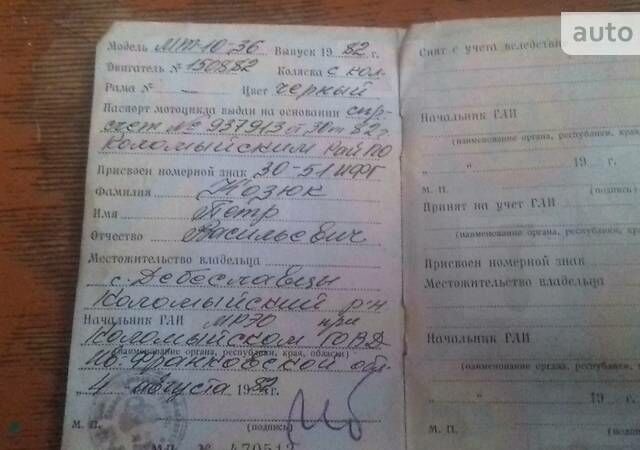 Модель МТ-10-36 Выпуск 1982 г.
Двигатель № 150882 Коляска с кол.
Рама № — Цвет черный
Паспорт мотоцикла выдан на основании спр-
счет № 937913 от 30 82 г.
Коломыйским РайПО
Присвоен номерной знак 30-51 ИФГ
Фамилия Козюк
Имя Петр
Отчество Васильевич
Местожительство владельца
с. Дебеславцы
Коломыйский р-н
Начальник ГАИ МРЭО при
Коломыйском ГОВД
(наименование органа, республики, края, области)
Ив-Франковской обл.
4 августа 1982 г.
М. П. (подпись)
№ 470512
auto
Снят с учета вследствие
Начальник ГАИ
(наименование органа, республики, края
" " 19
М. П. (подпись)
Принят на учет ГАИ
(наименование органа, республики, кр
Присвоен номерной знак
Местожительство владельца
Начальник ГАИ
(наименование органа, республики,
" " 19
М. П. (подпись)